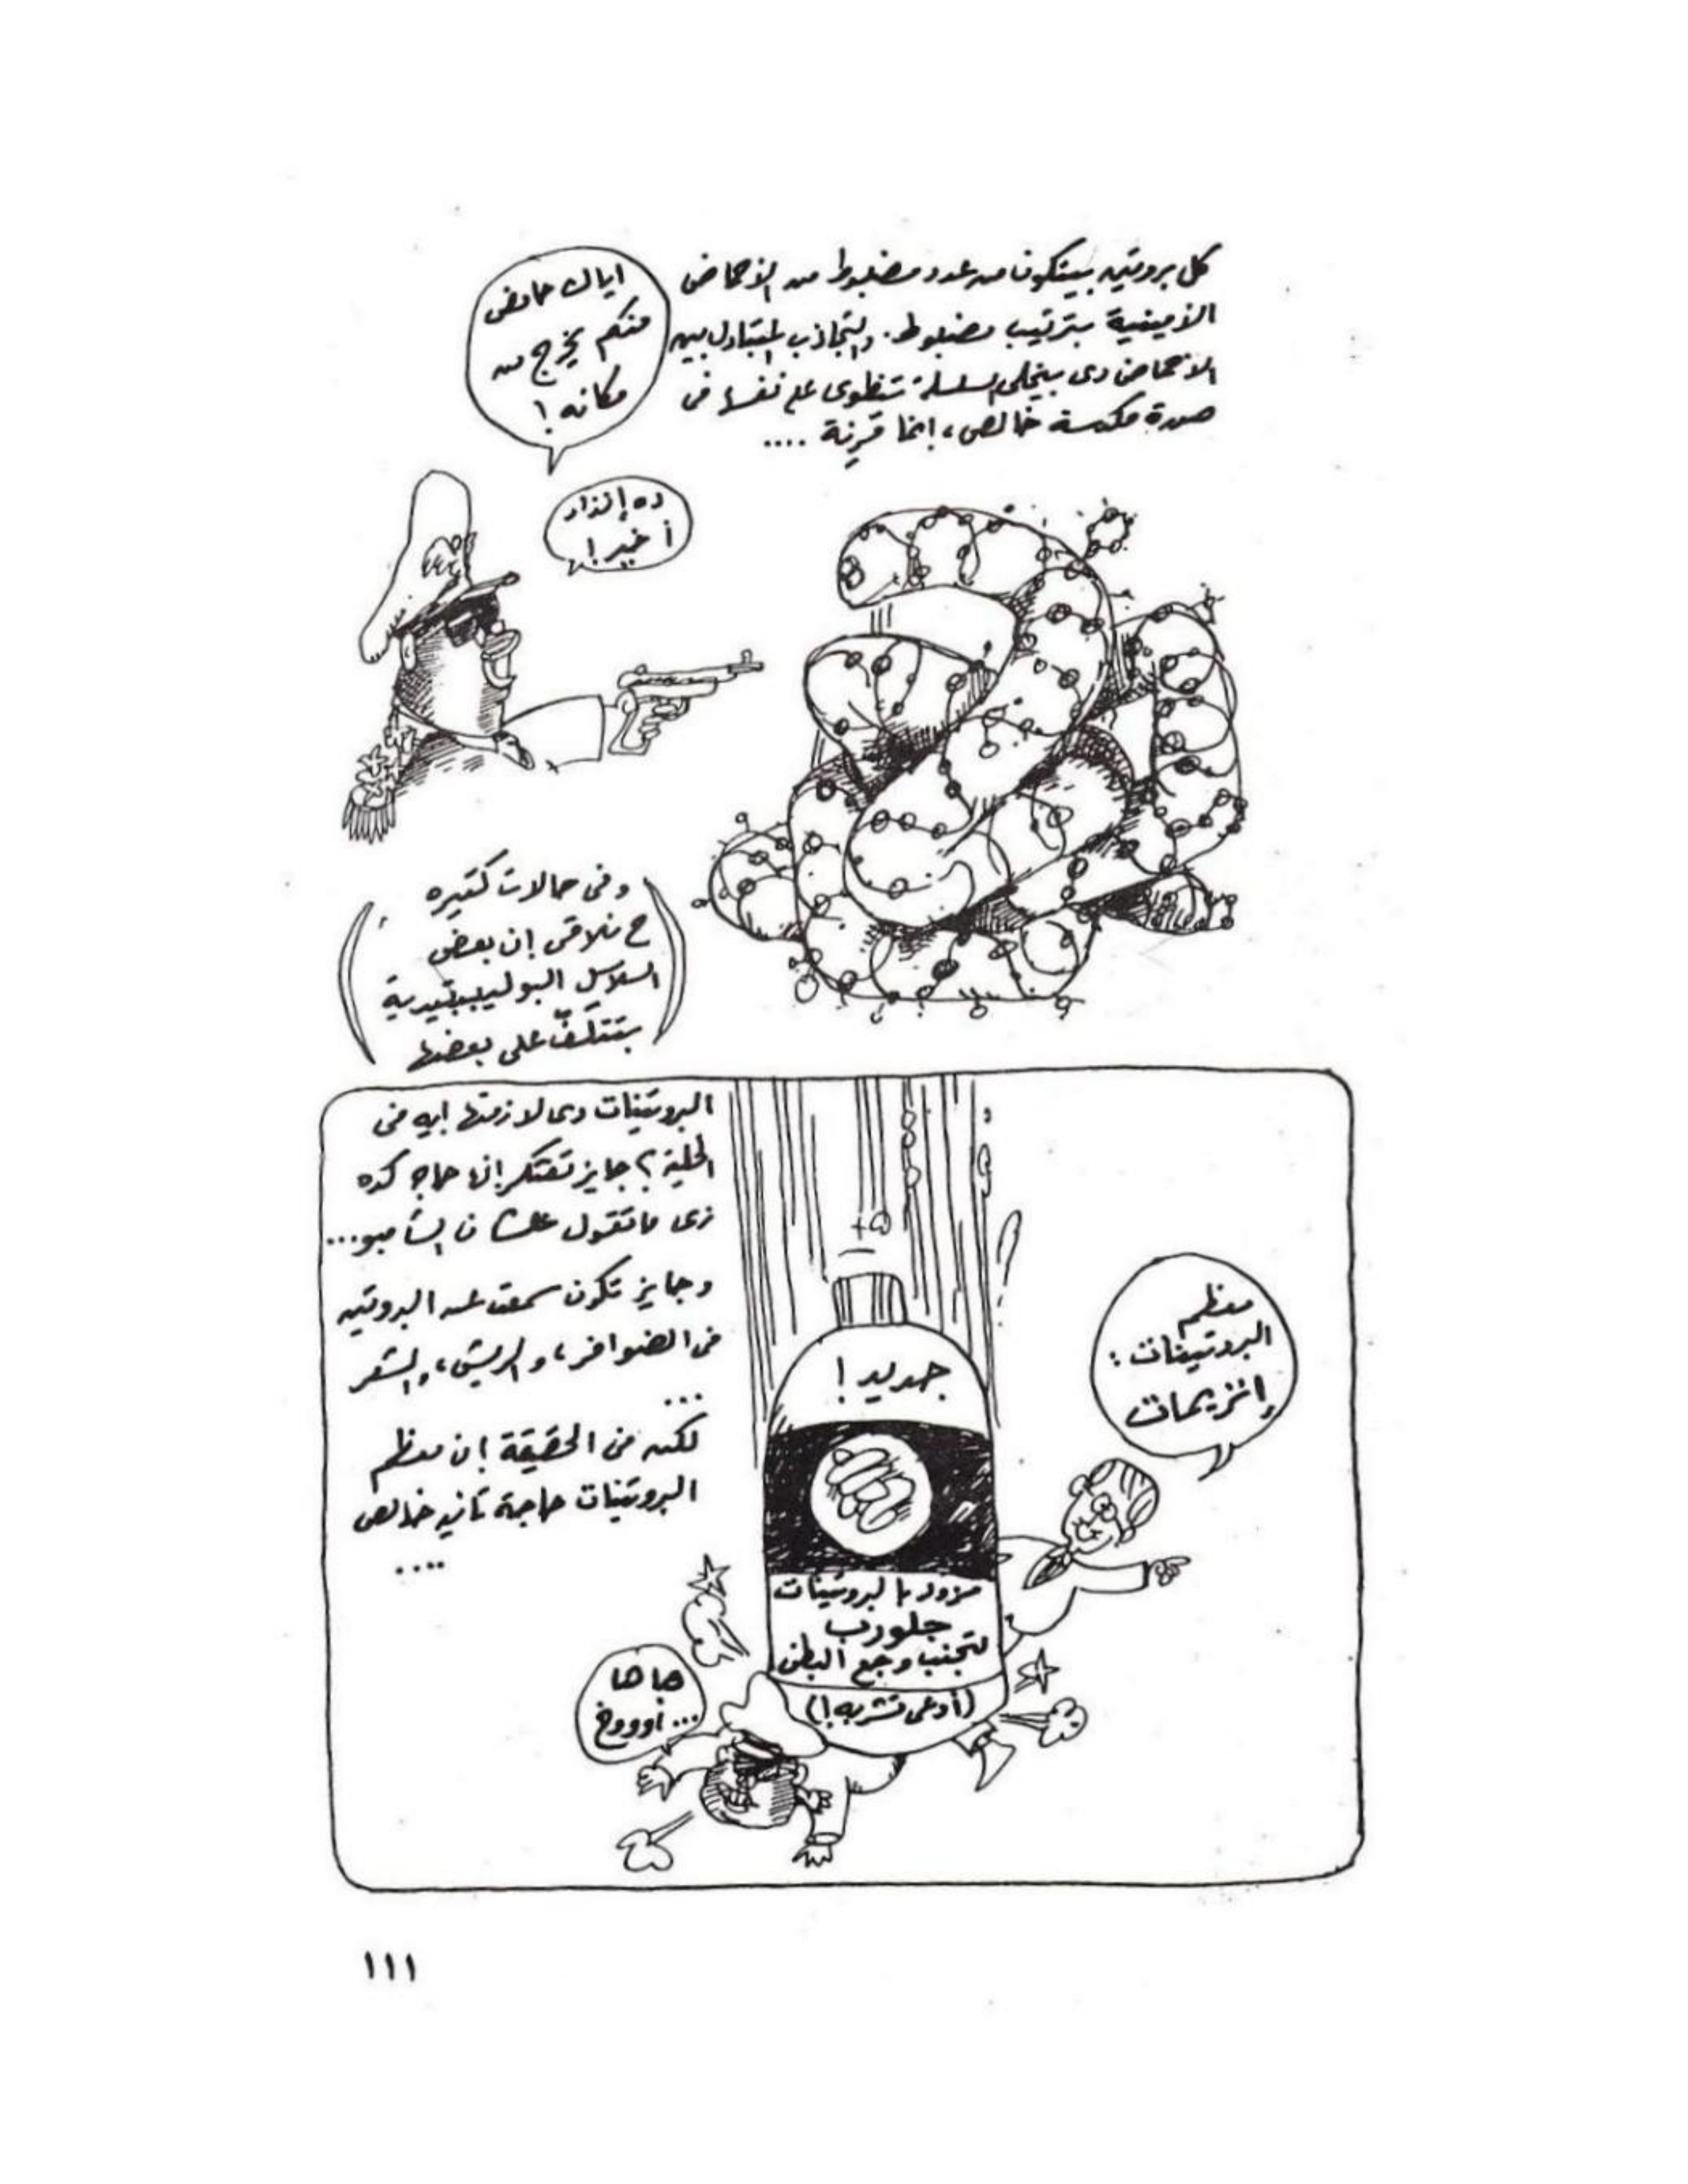 كل بروتين بيتكون من عدد مضبوط من الأحماض
الأمينية بترتيب مضبوط. والتجاذب المتبادل بين
الأحماض دى بيخلى السلسلة تنطوى على نفسها فى
صورة مكدسة خالص، إنما قرينة ....
اياك حامض
منكم يخرج من
مكانه!
ده إنذار
أخير!
وفى حالات كتيره
ح نلاقى إن بعض
السلاسل البوليببتيدية
بتتلف على بعضها
البروتينات دى لازمتها ايه فى
الخلية؟ جايز تفتكر إنها حاجة كده
زى ما تقول علشان الشامبو...
وجايز تكون سمعت عن البروتين
فى الضوافر، والريش، والشعر
...
لكن فى الحقيقة إن معظم
البروتينات حاجة تانيه خالص
....
معظم
البروتينات:
إنزيمات
جديد!
مزود بالبروتينات
جلورب
لتجنب وجع البطن
(أوعى تشربه!)
ها ها
... أوووخ
١١١